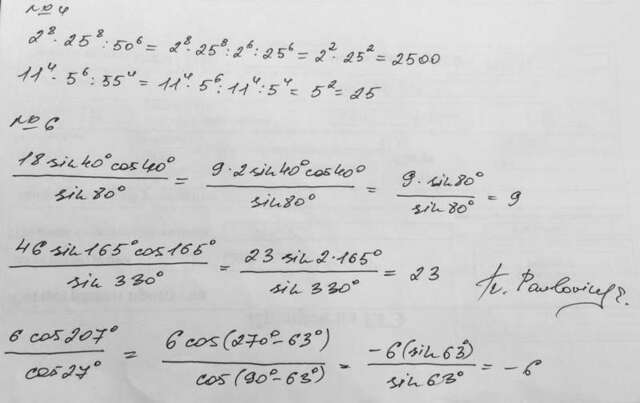 № 4
2⁸· 25⁸ : 50⁶ = 2⁸· 25⁸ : 2⁶ : 25⁶ = 2²· 25² = 2500
11⁴· 5⁶ : 55⁴ = 11⁴· 5⁶ : 11⁴ : 5⁴ = 5² = 25
№ 6
18 sin 40° cos 40° / sin 80° = 9 · 2 sin 40° cos 40° / sin 80° = 9 · sin 80° / sin 80° = 9
46 sin 165° cos 165° / sin 330° = 23 sin 2 · 165° / sin 330° = 23
6 cos 207° / cos 27° = 6 cos (270° - 63°) / cos (90° - 63°) = -6 (sin 63°) / sin 63° = -6